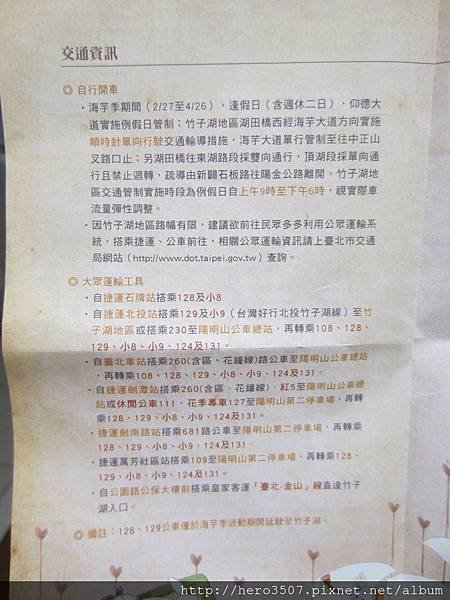 交通資訊
◎ 自行開車
・海芋季期間（2/27至4/26），逢假日（含週休二日），仰德大
道實施例假日管制；竹子湖地區湖田橋西經海芋大道方向實施
順時針單向行駛交通輔導措施，海芋大道單行管制至往中正山
叉路口止；另湖田橋往東湖路段採雙向通行，頂湖段採單向通
行且禁止迴轉，疏導由新闢石板路往陽金公路離開。竹子湖地
區交通管制實施時段為例假日自上午9時至下午6時，視實際車
流量彈性調整。
・因竹子湖地區路幅有限，建議欲前往民眾多多利用公眾運輸系
統，搭乘捷運、公車前往，相關公眾運輸資訊請上臺北市交通
局網站（http://www.dot.taipei.gov.tw）查詢。
◎ 大眾運輸工具
・自捷運石牌站搭乘128及小8
・自捷運北投站搭乘129及小9（台灣好行北投竹子湖線）至竹
子湖地區或搭乘230至陽明山公車總站，再轉乘108、128、
129、小8、小9、124及131。
・自臺北車站搭乘260(含區、花鐘線)路公車至陽明山公車總站
，再轉乘108、128、129、小8、小9、124及131。
・自捷運劍潭站搭乘260(含區、花鐘線)、紅5至陽明山公車總
站或休閒公車111、花季專車127至陽明山第二停車場，再轉
乘128、129、小8、小9、124及131。
・捷運劍南路站搭乘681路公車至陽明山第二停車場，再轉乘
128、129、小8、小9、124及131。
・捷運萬芳社區站搭乘109至陽明山第二停車場，再轉乘128、
129、小8、小9、124及131。
・自公園路公保大樓前搭乘皇家客運「臺北-金山」線直達竹子
湖入口。
◎ 備註：128、129公車僅於海芋季活動期間延駛至竹子湖。
http://hero3507.pixnet.net/album